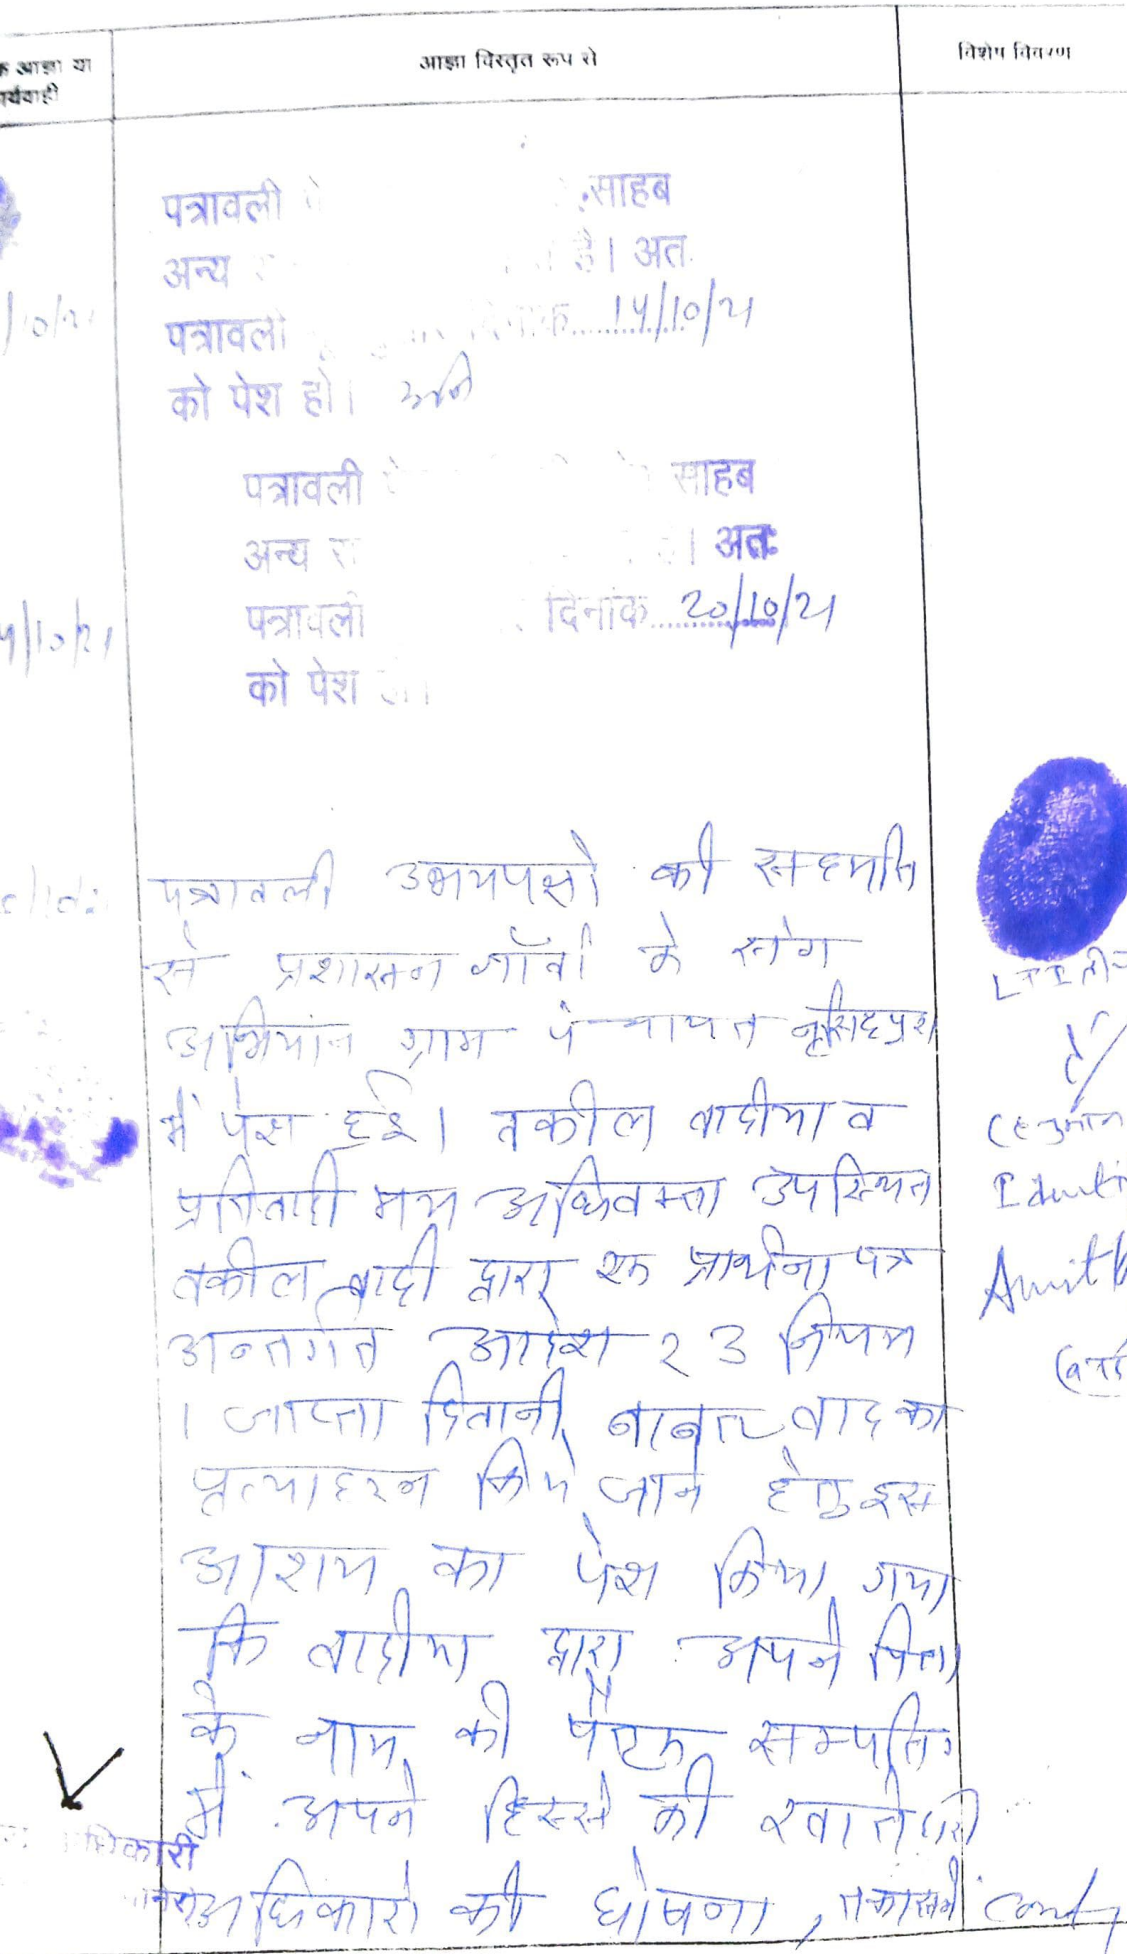 क आज्ञा या
र्यवाही
आज्ञा विस्तृत रूप से
विशेष विवरण
पत्रावली साहब
अन्य है। अत
/10/21
पत्रावली दिनांक 14/10/21
को पेश हो।
पत्रावली साहब
अन्य अतः
4/10/21
पत्रावली दिनांक 20/10/21
को पेश
पत्रावली उभयपक्षो की सहमति
से प्रशासन गॉवों के संग
अभियान ग्राम पंचायत नृसिंहपुरा
में पेश हुई। वकील वादीया व
प्रतिवादी मय अधिवक्ता उपस्थित
वकील वादी द्वारा एक प्रार्थना पत्र
अन्तर्गत आदेश 23 नियम
1 जाप्ता दिवानी बाबत वाद का
प्रत्याहरन किये जाने हेतु इस
आशय का पेश किया गया
कि वादीया द्वारा अपने पिता
के नाम की पैतृक सम्पति
में अपने हिस्से की खातेदारी
अधिकारो की घोषणा,
LTI
Amit
धिकारी